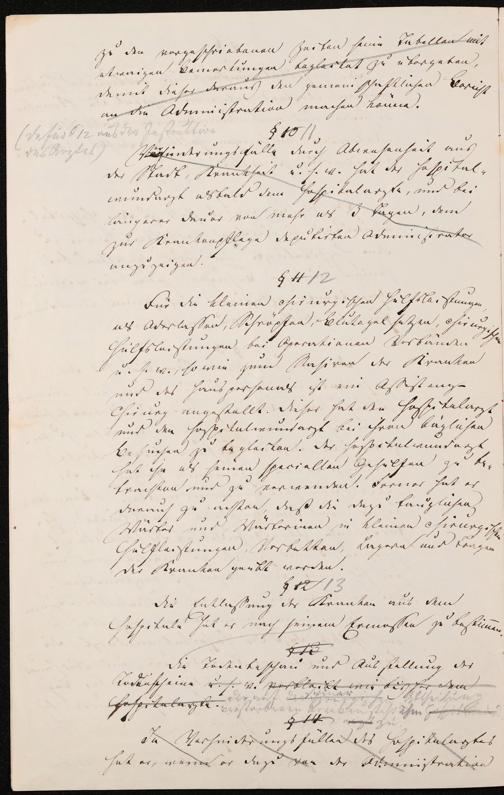 zu den vorgeschriebenen Zeiten seine Tabellen mit
etwaigen Bemerkungen begleitet zu übergeben,
damit dieser daraus den gemeinschaftlichen Bericht
an die Administration machen könne.
§ 10 11
(dafür § 12 aus der Instruktion
des Arztes)
Verhinderungsfälle durch Abwesenheit aus
der Stadt, Krankheit u. s. w. hat der Hospital-
wundarzt alsbald dem Hospitalarzte, und bei
längerer Dauer von mehr als 3 Tagen, dem
zur Krankenpflege deputirten Administrator
anzuzeigen.
§ 11 12
Für die kleinen chirurgischen Hülfsleistungen
als Aderlassen, Schröpfen, Blutegel setzen, chirurgischen
Hülfsleistungen bei Operationen Verbänden
u. s. w. sowie zum Rasiren der Kranken
und des Hauspersonals ist ein Assistenz-
Chirurg angestellt. Dieser hat den Hospitalarzt
und den Hospitalwundarzt bei ihren täglichen
Besuchen zu begleiten. Der Hospitalwundarzt
hat ihn als seinen speciellen Gehülfen zu be-
trachten und zu verwenden. Ferner hat er
darauf zu achten, daß die dazu tauglichen
Wärter und Wärterinen in kleinen chirurgischen
Hülfleistungen, Verbetten, Lagern und Tragen
der Kranken geübt werden.
§ 12 13
Die Entlassung der Kranken aus dem
Hospitale hat er nach seinem Ermessen zu bestimmen.
§ 13
Die Todtenbeschau und Ausstellung der
Todtenscheine u. s. w. verbleibt wie bisher dem
Hospitalarzte.
§ 14
In Verhinderungsfällen des Hospitalarztes
hat er, wenn er dazu von der Administration